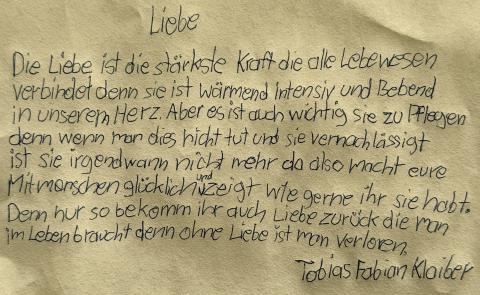 Liebe
Die Liebe ist die stärkste Kraft die alle Lebewesen
verbindet denn sie ist wärmend Intensiv und Bebend
in unserem Herz. Aber es ist auch wichtig sie zu Pflegen
denn wenn man dies nicht tut und sie vernachlässigt
ist sie irgendwann nicht mehr da also macht eure
Mitmenschen glücklich und zeigt wie gerne ihr sie habt.
Denn nur so bekomm ihr auch Liebe zurück die man
im Leben braucht denn ohne Liebe ist man verloren,
Tobias Fabian Klaiber